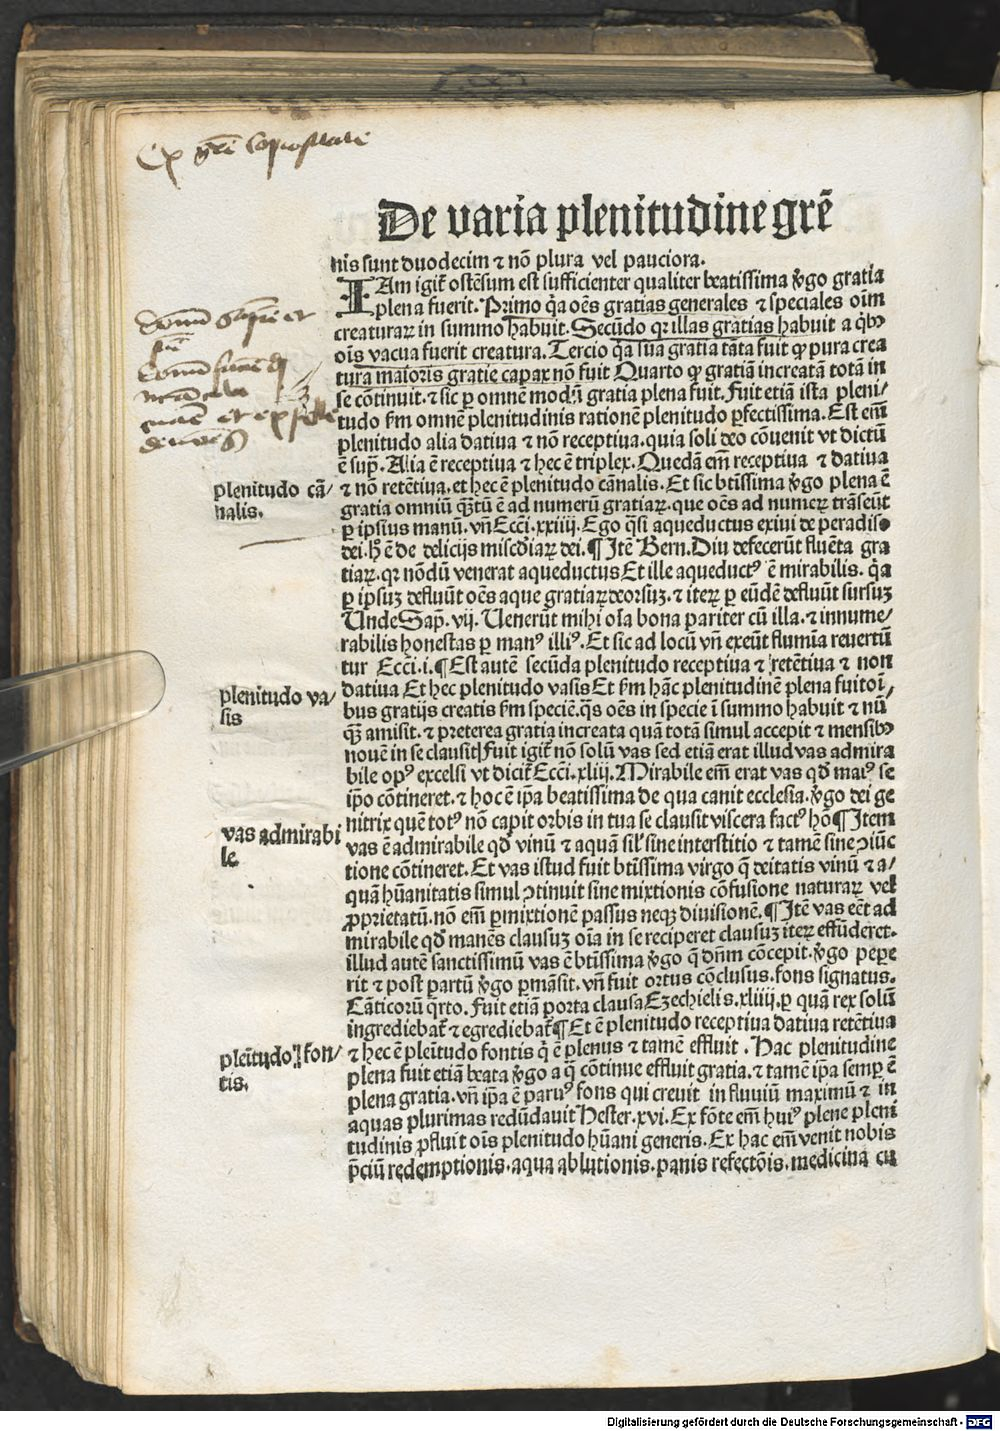 Ex grē copiositate
De varia plenitudine grē
nis sunt duodecim ⁊ nō plura vel pauciora.
IAm igit̄ ostēsum est sufficienter qualiter beatissima v̄go gratia
plena fuerit. Primo q̄a oēs gratias generales ⁊ speciales oīm
creaturaꝝ in summo habuit. Secūdo qꝛ illas gratias habuit a q̄bꝫ
oīs vacua fuerit creatura. Tercio q̄a sua gratia tāta fuit ꝙ pura crea
tura maioris gratie capax nō fuit Quarto ꝙ gratiā increatā totā in
se cōtinuit. ⁊ sic ꝑ omnēm modū gratia plena fuit. Fuit etiā ista pleni-
tudo ẜm omnē plenitudinis rationē plenitudo ꝑfectissima. Est em̄
plenitudo alia datiua ⁊ nō receptiua. quia soli deo cōuenit vt dictū
ē sup̄. Alia ē receptiua ⁊ hec ē triplex. Quedā em̄ receptiua ⁊ datiua
plenitudo cā/
nalis.
⁊ nō retētiua. et hec ē plenitudo cānalis. Et sic btīssima v̄go plena ē
gratia omniū q̄ꝫtū ē ad numerū gratiaꝝ. que oēs ad numeꝝ trāseūt
ꝑ ipsius manū. vn̄ Ecci. xxiiij. Ego q̄si aqueductus exiui de peradiso
dei. hͦ ē de delicijs misc̄diaꝝ dei. ¶ Itē Bern. Diu defecerūt fluēta gra
tiaꝝ. qꝛ nōdū venerat aqueductus Et ille aqueductꝰ ē mirabilis. q̄a
ꝑ ipsuꝫ defluūt oēs aque gratiaꝝ deorsuꝫ. ⁊ iteꝝ ꝑ eūdē defluūt sursuꝫ
Unde Sap̄. vij. Uenerūt mihi oīa bona pariter cū illa. ⁊ innume-
rabilis honestas ꝑ manꝰ illiꝰ. Et sic ad locū vn̄ exeūt flumīa reuertū
tur Ecci. i. ¶ Est autē secūda plenitudo receptiua ⁊ retētiua ⁊ non
plenitudo va/
sis
datiua Et hec plenitudo vasis Et ẜm hāc plenitudinē plena fuit oī/
bus gratijs creatis ẜm speciē. q̄s oēs in specie ī summo habuit ⁊ nū
q̄ꝫ amisit. ⁊ preterea gratia increata quā totā simul accepit ⁊ mensibꝫ
nouē in se clausit Fuit igit̄ nō solū vas sed etiā erat illud vas admira
bile opꝰ excelsi vt dicit̄ Ecci. xliij. Mirabile em̄ erat vas qd̄ maiꝰ se
ip̄o cōtineret. ⁊ hoc ē ip̄a beatissima de qua canit ecclesia. v̄go dei ge
nitrix quē totꝰ nō capit orbis in tua se clausit viscera factꝰ hō ¶ Item
vas admirabi
le
vas ē admirabile qd̄ vinū ⁊ aquā sil̄ sine interstitio ⁊ tamē sine ꝯiūc
tione cōtineret. Et vas istud fuit btīssima virgo q̄ deitatis vinū ⁊ a/
quā hūanitatis simul ꝯtinuit sine mixtionis cōfusione naturaꝝ vel
ꝓprietatū. nō em̄ ꝑmixtionē passus neqꝫ diuisionē. ¶ Itē vas eēt ad
mirabile qd̄ manēs clausuꝫ oīa in se reciperet clausuꝫ iteꝝ effūderet.
illud autē sanctissimū vas ē btīssima v̄go q̄ dn̄m cōcepit. v̄go pepe
rit ⁊ post partū v̄go ꝑmāsit. vn̄ fuit ortus cōclusus. fons signatus.
Cāticorū q̄rto. Fuit etiā porta clausa Ezechielis. xliiij. ꝑ quā rex solū
ingrediebat̄ ⁊ egrediebat̄ ¶ Et ē plenitudo receptiua datiua retētiua
pleītudo fon/
tis.
⁊ hec ē pleītudo fontis q̄ ē plenus ⁊ tamē effluit. Hac plenitudine
plena fuit etiā beata v̄go a q̄ cōtinue effluit gratia. ⁊ tamē ip̄a semꝑ ē
plena gratia. vn̄ ip̄a ē paruꝰ fons qui creuit in fluuiū maximū ⁊ in
aquas plurimas redūdauit Hester. xvi. Ex fōte em̄ huiꝰ plene pleni
tudinis ꝓfluit oīs plenitudo hūani generis. Ex hac em̄ venit nobis
p̄ciū redemptionis. aqua ablutionis. panis refectōis. medicina cu
Digitalisierung gefördert durch die Deutsche Forschungsgemeinschaft - DFG